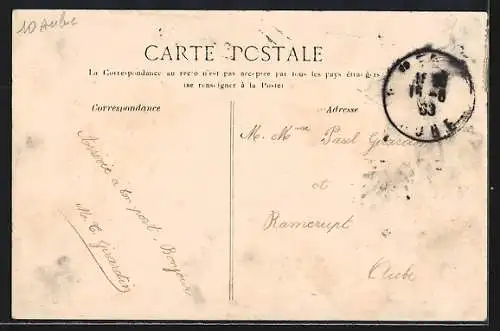 10 Aube
CARTE POSTALE
La Correspondance au recto n'est pas acceptée par tous les pays étrangers
(se renseigner à la Poste)
Correspondance
Adresse
Arrivée à bon port. Bonjour
M. C. Girardin
M. Mme Paul Girardin
at
Ramerupt
Aube
AUBE